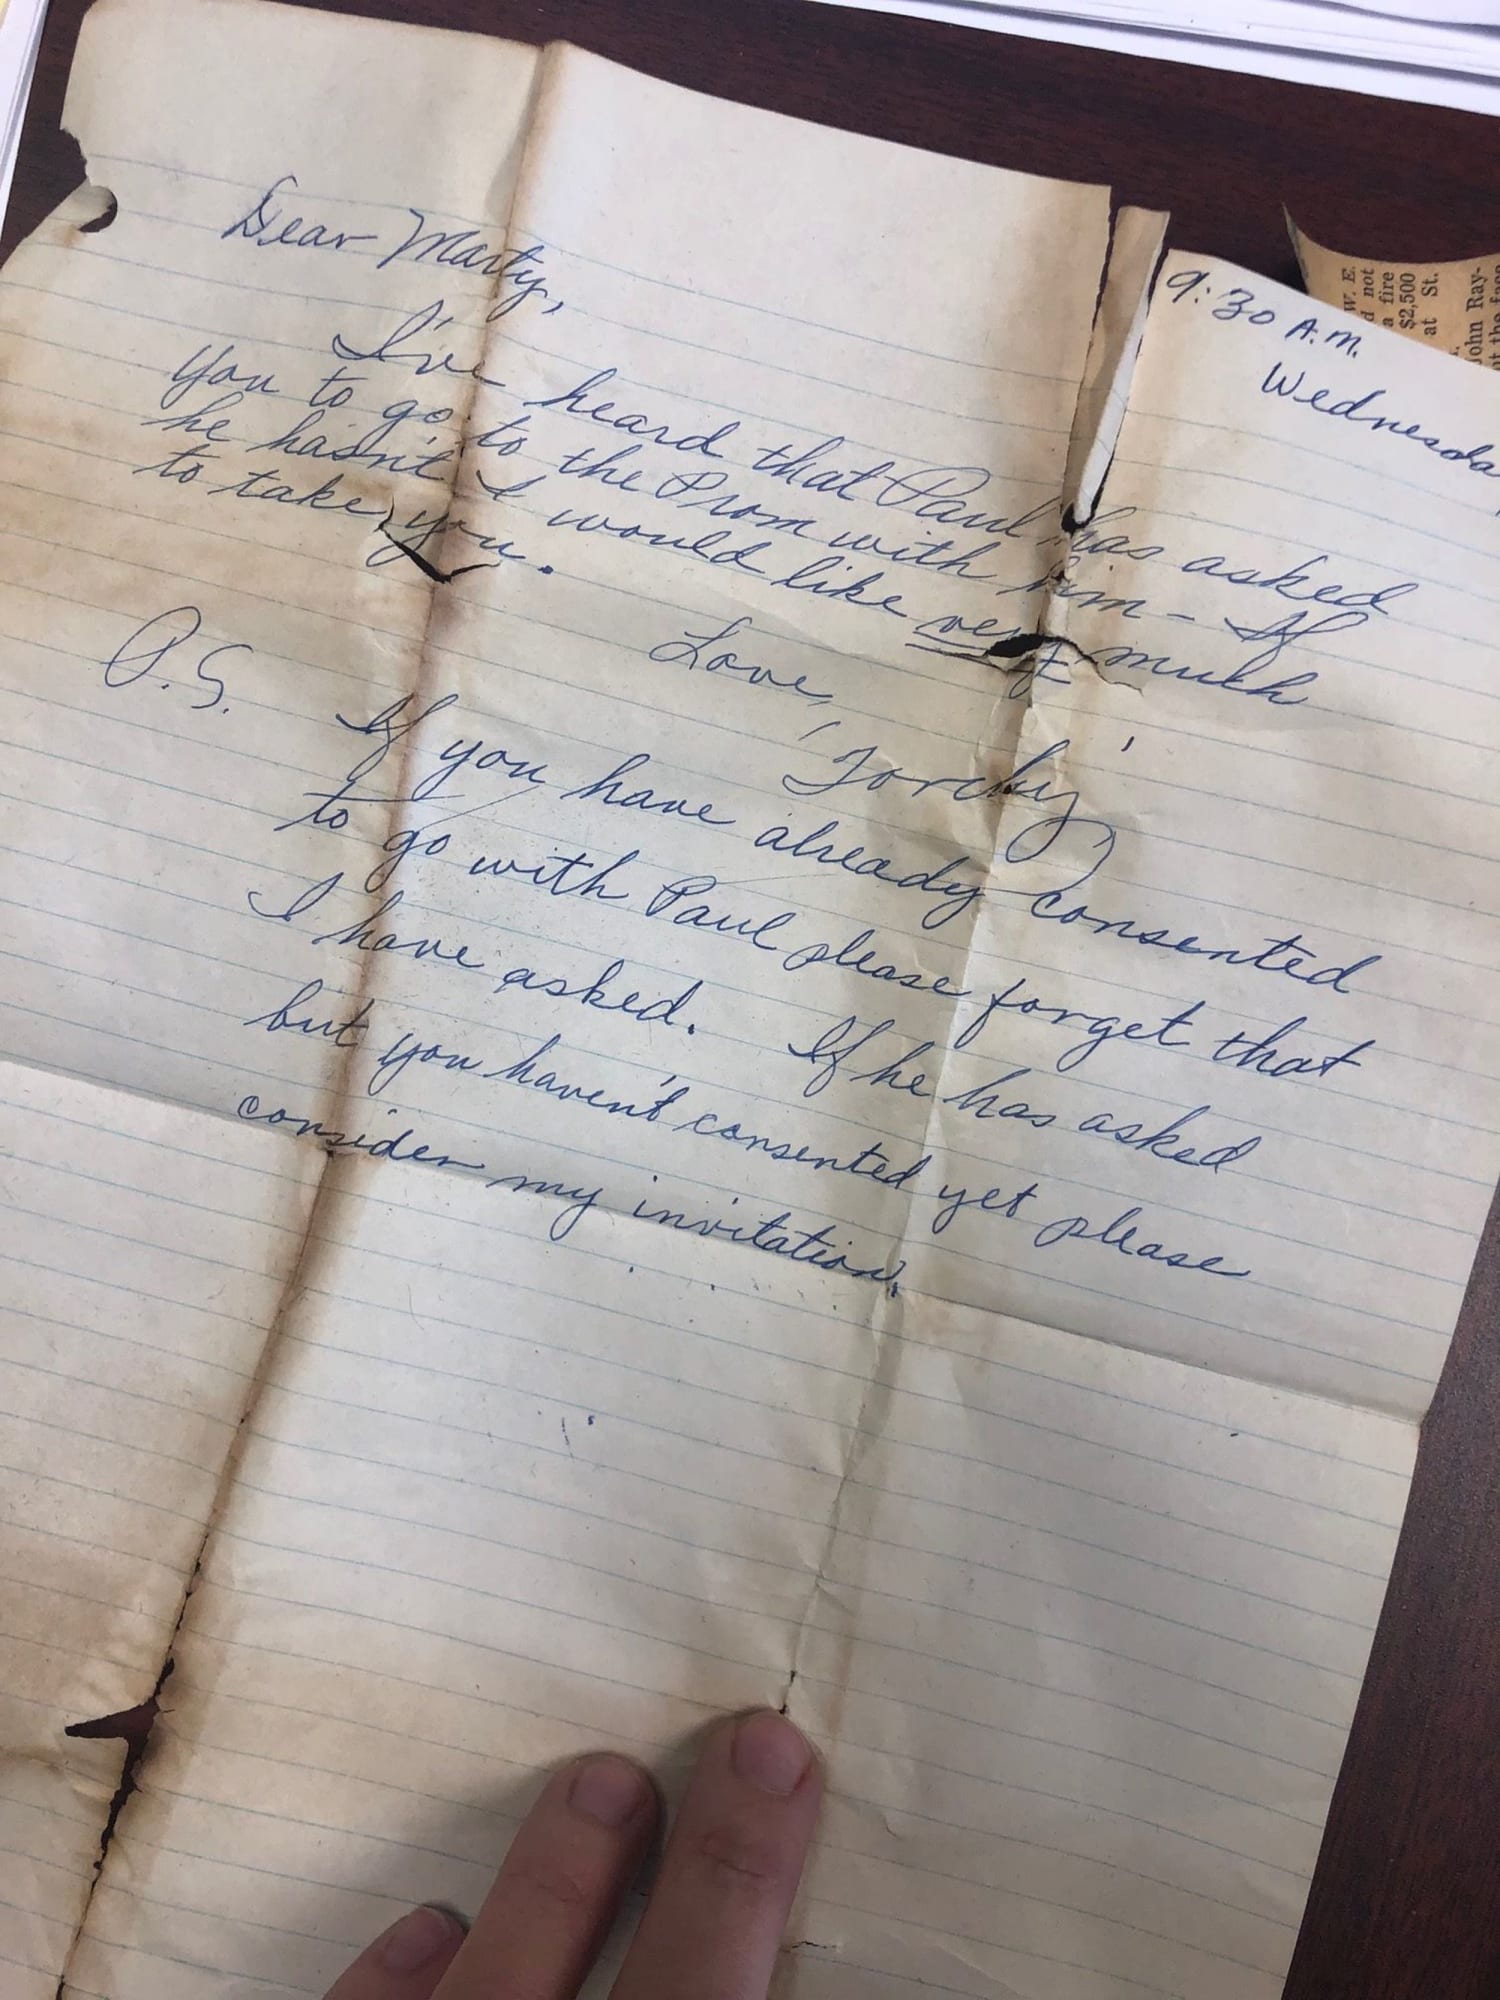 9:30 A.M.
Wednesda
Dear Marty,
I've heard that Paul has asked
you to go to the Prom with him - If
he hasn't I would like very much
to take you.
Love,
'Torchy'
P.S. If you have already consented
to go with Paul please forget that
I have asked. If he has asked
but you haven't consented yet please
consider my invitation.
W. E.
d not
a fire
$2,500
at St.
John Ray-
ot the face